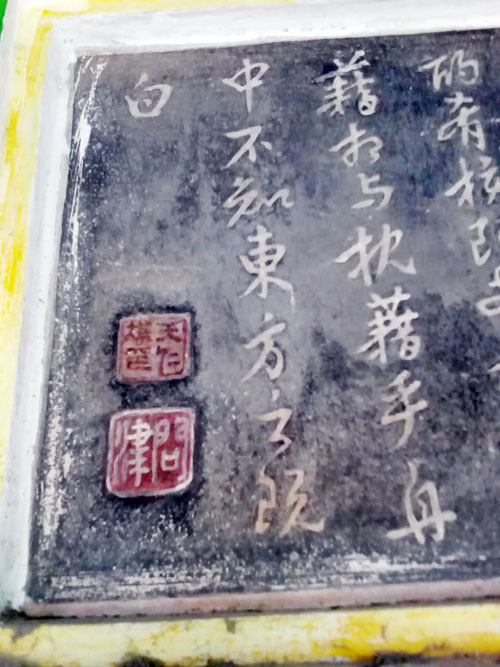 酌肴核既
藉相与枕藉乎舟
中不知東方之既
白
問津